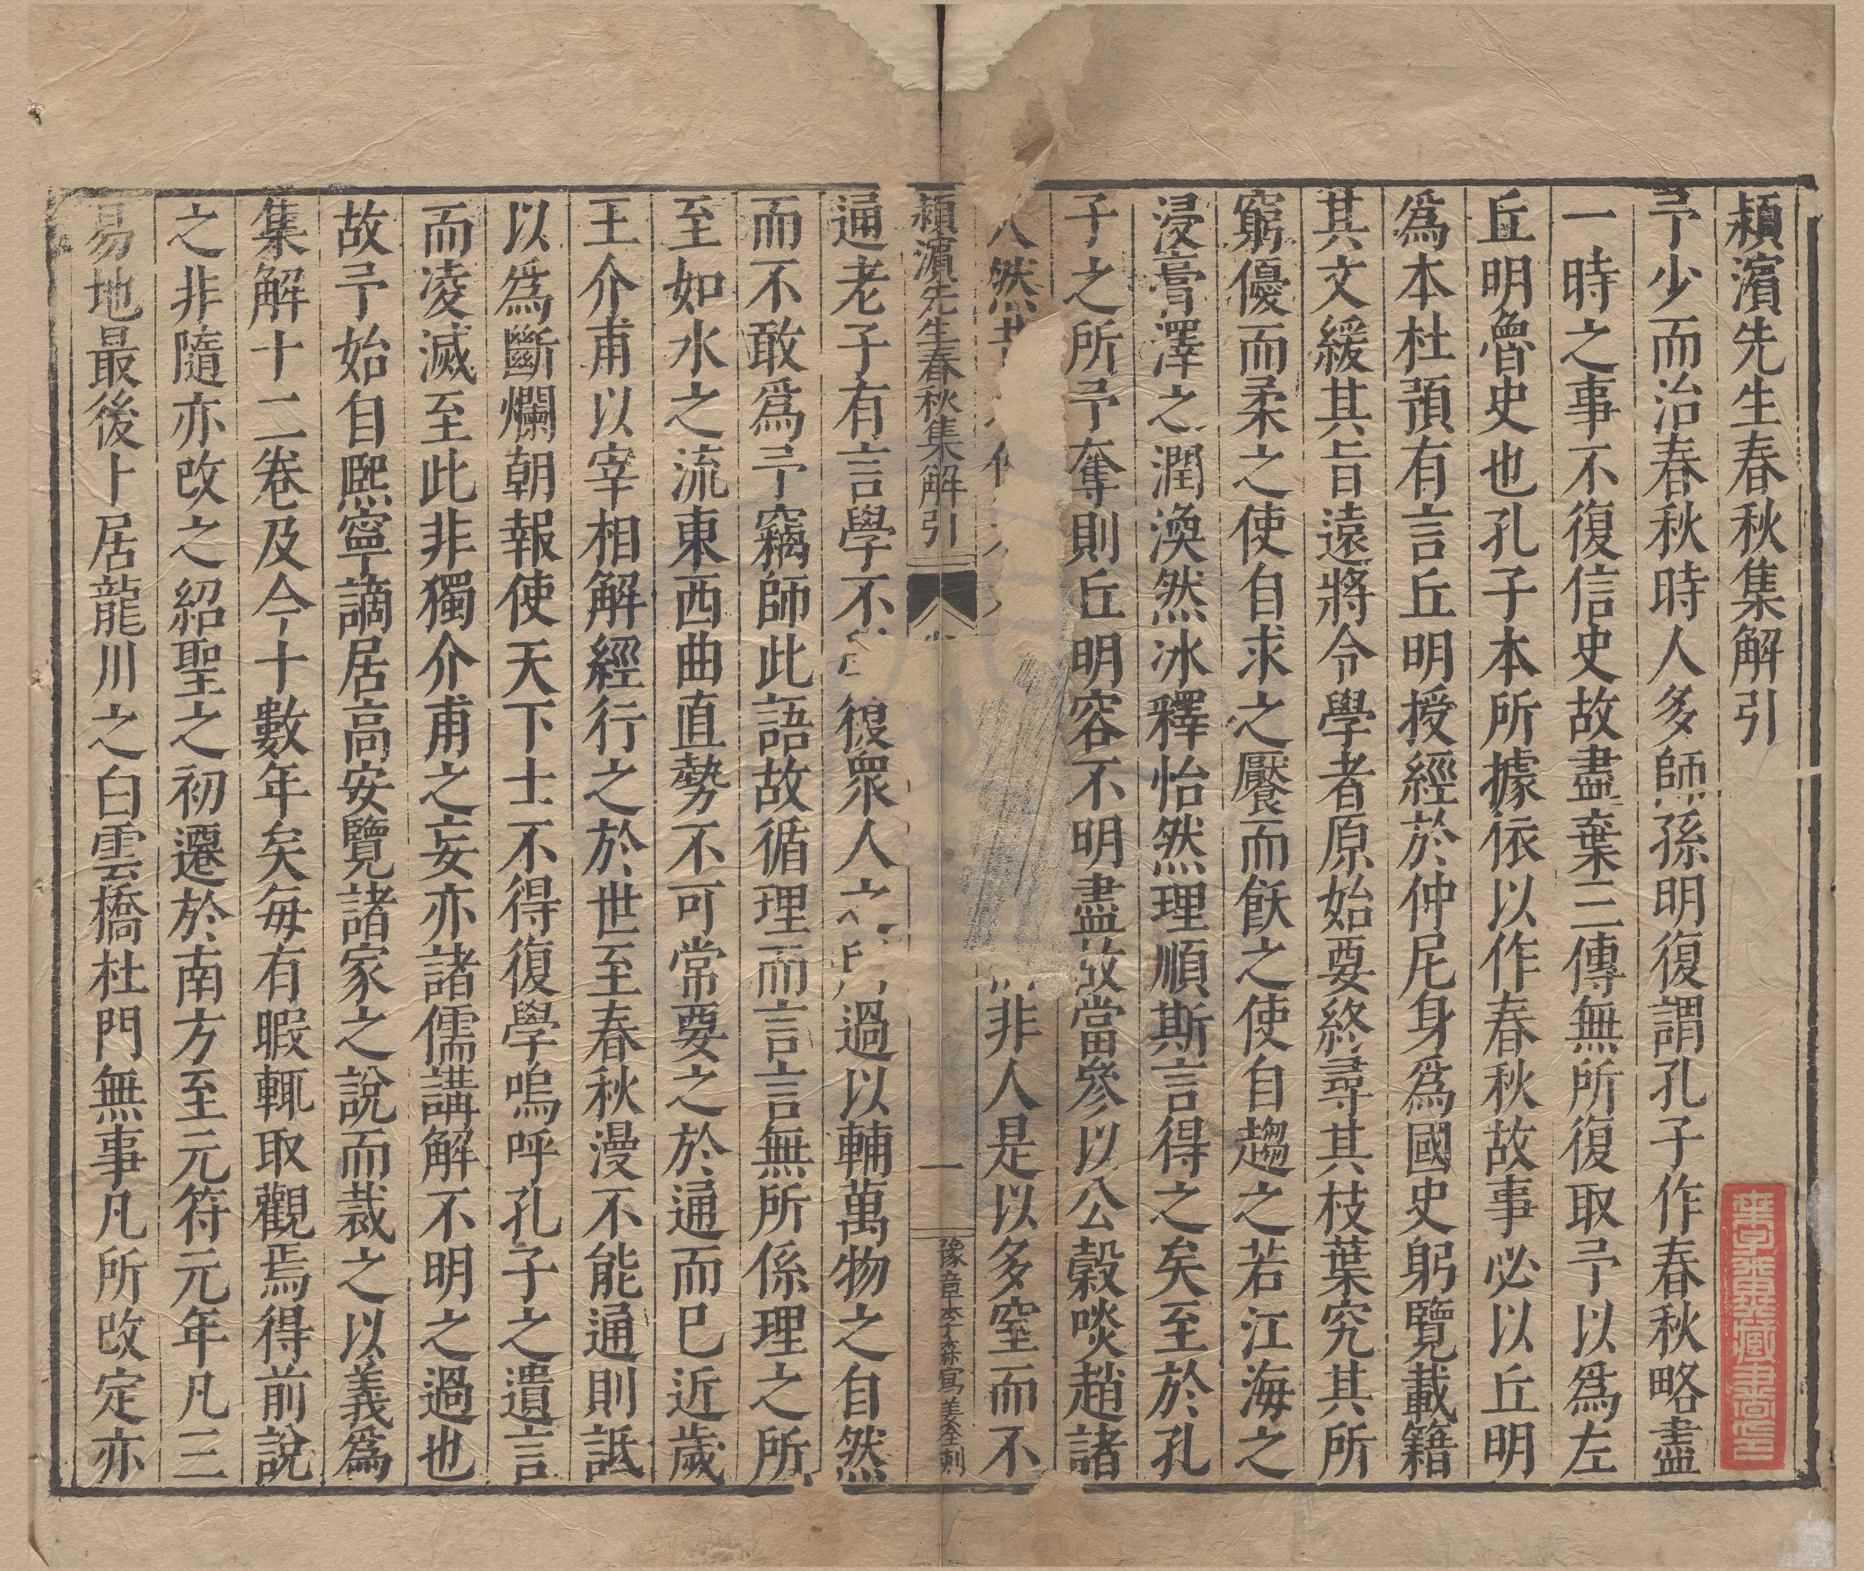 潁濱先生春秋集解引
予少而治春秋時人多師孫明復謂孔子作春秋略盡
一時之事不復信史故盡棄三傳無所復取予以爲左
丘明魯史也孔子本所據依以作春秋故事必以丘明
爲本杜預有言丘明授經於仲尼身爲國史躬覽載籍
其文緩其旨遠將令學者原始要終尋其枝葉究其所
窮優而柔之使自求之饜而飫之使自趨之若江海之
浸膏澤之潤渙然冰釋怡然理順斯言得之矣至於孔
子之所予奪則丘明容不明盡故當參以公穀啖趙諸
人然
非人是以多窒而不
潁濱先生春秋集解引
一
豫章李森寫姜全刺
通老子有言學不
復衆人之
過以輔萬物之自然
而不敢爲予竊師此語故循理而言言無所係理之所
至如水之流東西曲直勢不可常要之於通而已近歲
王介甫以宰相解經行之於世至春秋漫不能通則詆
以爲斷爛朝報使天下士不得復學嗚呼孔子之遺言
而凌滅至此非獨介甫之妄亦諸儒講解不明之過也
故予始自熙寧謫居高安覽諸家之說而裁之以義爲
集解十二卷及今十數年矣每有暇輒取觀焉得前說
之非隨亦改之紹聖之初遷於南方至元符元年凡三
易地最後卜居龍川之白雲橋杜門無事凡所改定亦